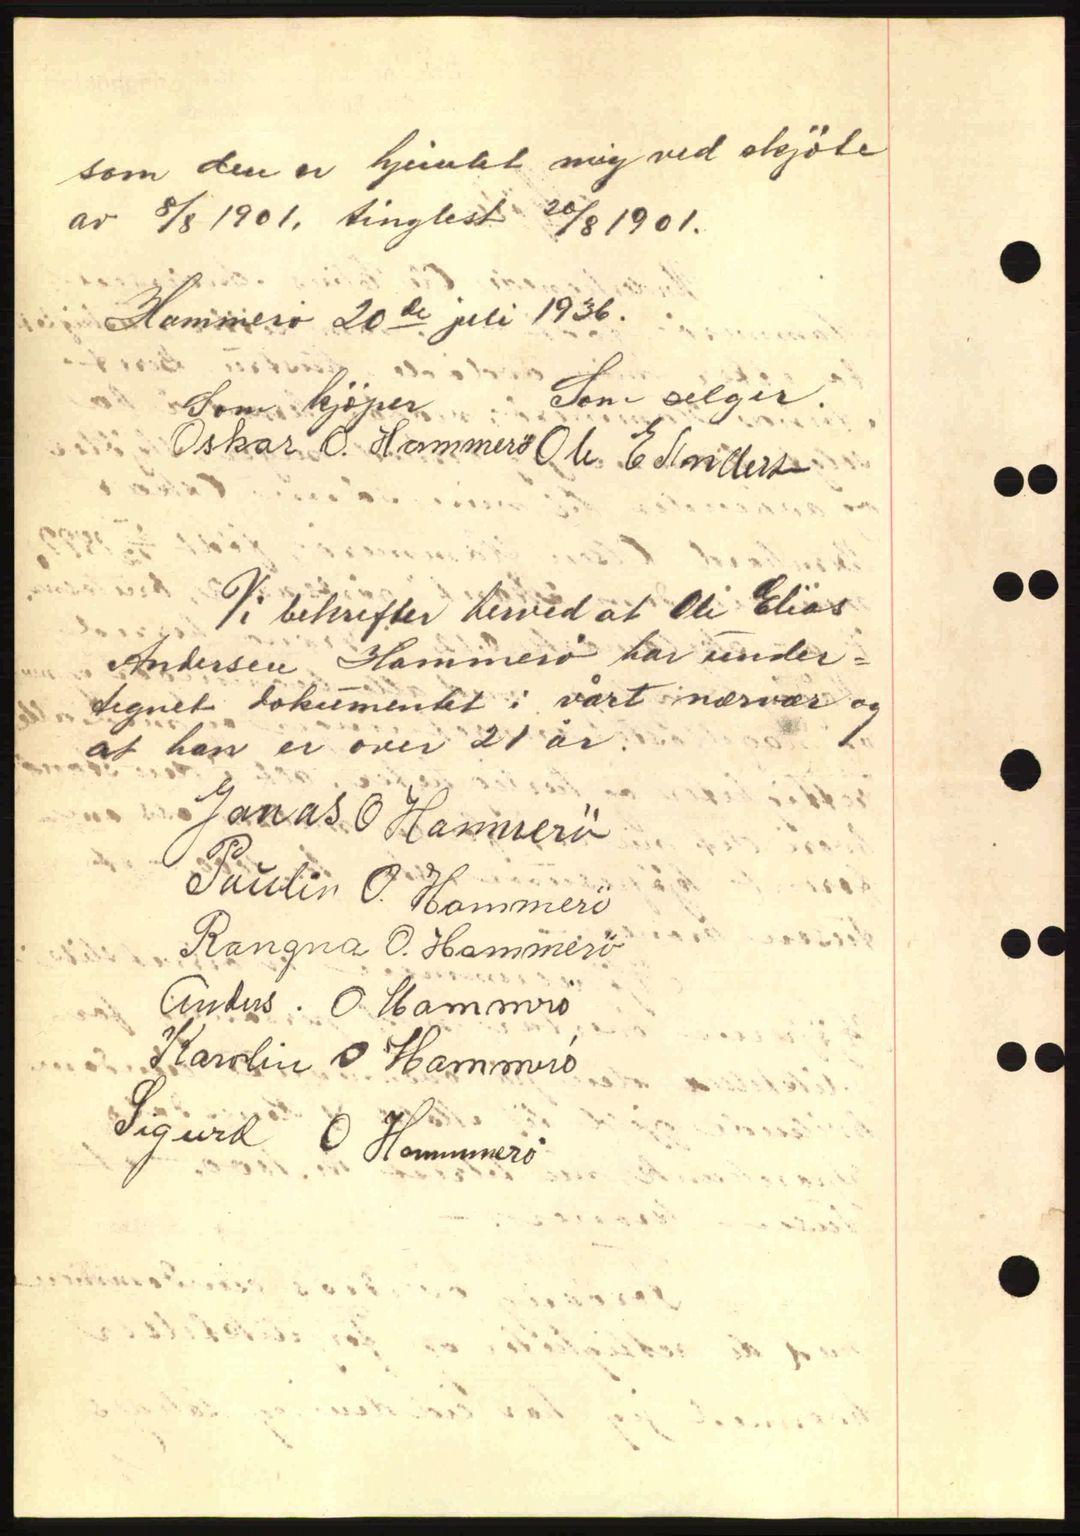 som den er hjemlet mig ved skjöte
av 8/8 1901. tinglest 20/8 1901.
Hammerö 20de juli 1936.
Som kjöper Som selger.
Oskar O. Hammerö Ole E Anders
Vi bekrefter herved at Ole Elias
Andersen Hammerö har under=
tegnet dokumentet i vårt nærvær og
at han er over 21 år.
Jonas O Hammerö
Paulin O. Hammerö
Rangna O. Hammerö
Anders. O Hammerö
Karolin O Hammerö
Sigurd O Hammerö